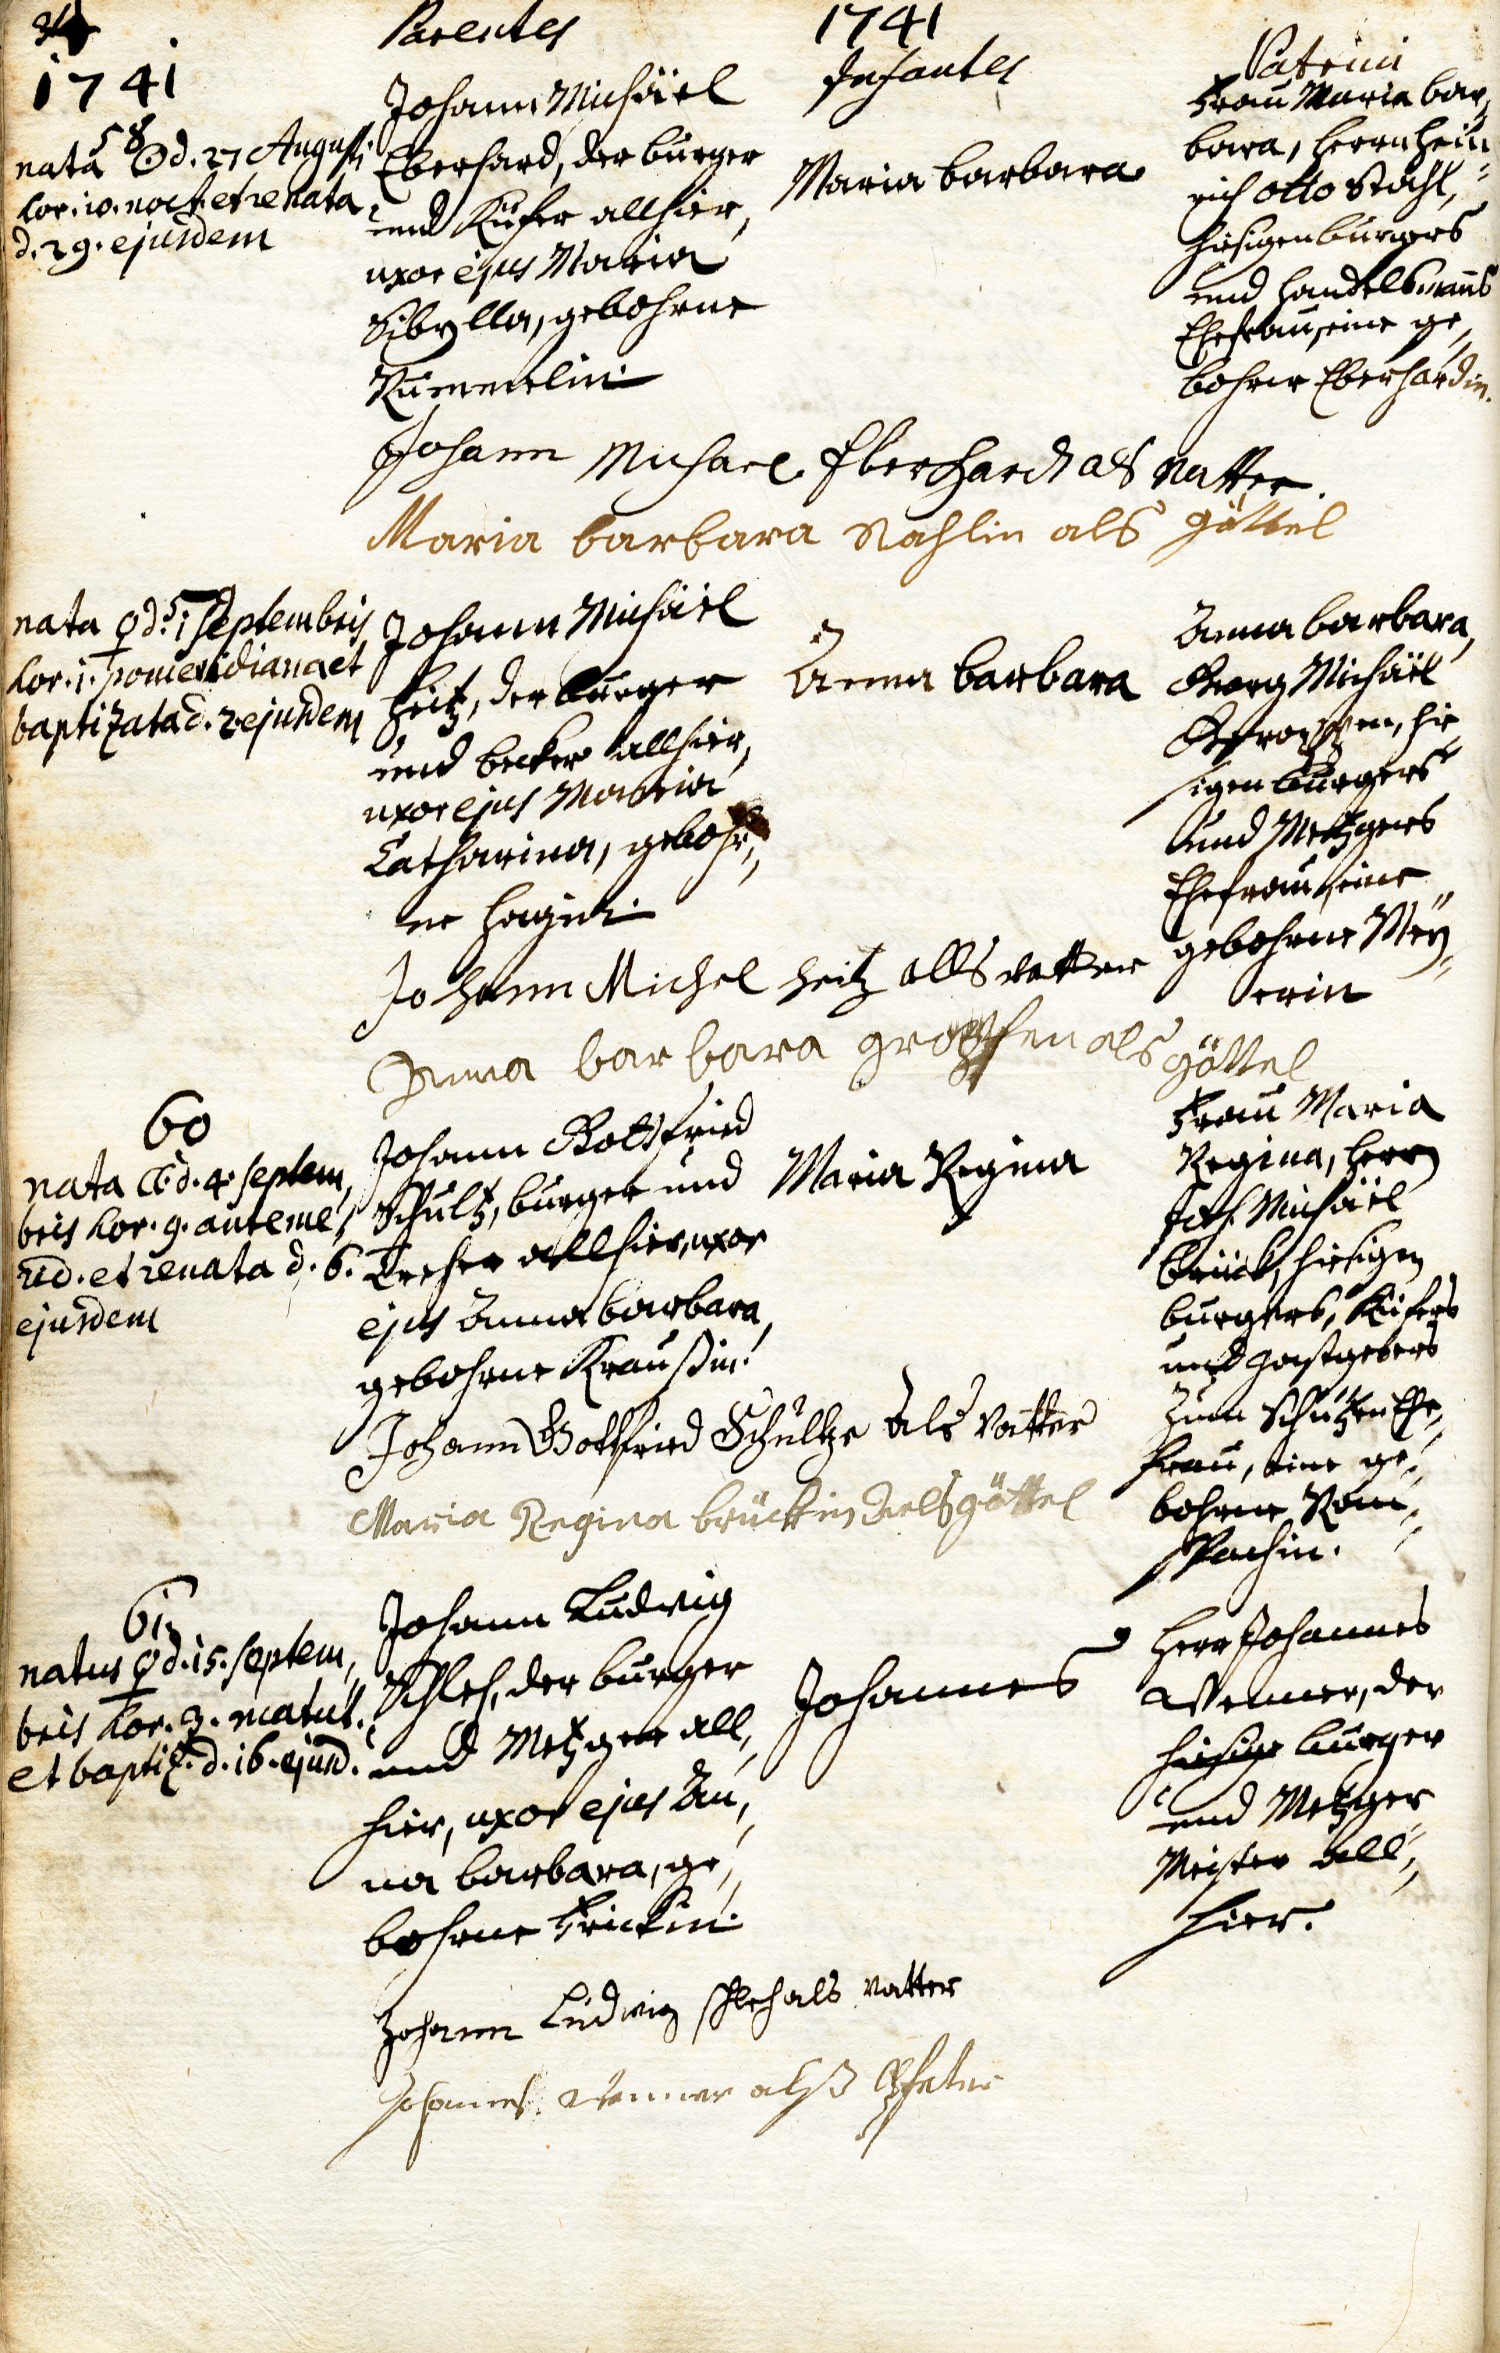 1741
Parentes
1741
Infantes
Patrini
58
nata ☉ d. 27 Augusti
hor. 10. noct. et renata
d. 29. ejusdem
Johann Michäel
Eberhard, der burger
und Küfer allhier,
uxor ejus Maria
Sibylla, gebohrne
Kümmelin.
Maria barbara
Frau Maria bar,
bara, Herrn Hein
rich Otto Stahl,
hiesigen burgers
und Handelsmanns
Ehefrau, eine ge,
bohrne Eberhardin.
Johann Michael Eberhardt als Vatter.
Maria barbara Stahlin als göttel
nata ♀ d. 1 Septembris
hor. 1. pomeridiana et
baptizata d. 2 ejusdem
Johann Michäel
Heitz, der burger
und becker allhier,
uxor ejus Maria
Catharina, gebohr,
ne Hagin.
Anna barbara
Anna barbara,
Georg Michäel
hie
sigen burgers
und Metzgers
Ehefrau, eine
gebohrne Mey,
erin
Johann Michel Heitz alls vatter
Anna barbara als göttel
60
nata ☾ d. 4. Septem,
bris hor. 9. anteme,
rid. et renata d. 6.
ejusdem
Johann Gottfried
Schultz, burger und
Dreher allhier, uxor
ejus Anna barbara,
gebohrne Kraußin.
Maria Regina
Frau Maria
Regina, Herrn
Joh. Michäel
brück, hiesigen
burgers, Küfers
und gastgebers
zum Schützen Ehe,
frau, eine ge,
bohrne Rom,
spachin.
Johann Gottfried Schultze als Vatter
Maria Regina brückin als göttel
61
natus ♀ d. 15. Septem,
bris hor. 3. matut.
et baptiz. d. 16. ejusd.
Johann Ludwig
Schleh, der burger
und Metzger all,
hier, uxor ejus An,
na barbara, ge,
bohrne Frickin.
Johannes
Herr Johannes
Wenner, der
hiesige burger
und Metzger
Meister all,
hier.
Johann Ludwig Schleh als vatter
Johannes Wenner alß Pfetter